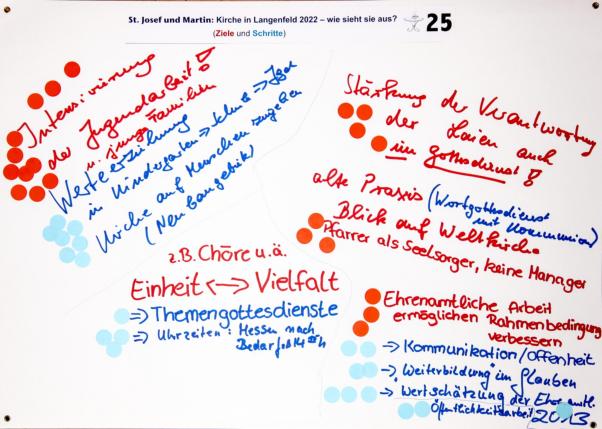 St. Josef und Martin: Kirche in Langenfeld 2022 – wie sieht sie aus?
(Ziele und Schritte)
25
Intensivierung
der Jugendarbeit!
u. junge Familien
Werteerziehung
in Kindergarten → Schule →
Kirche auf Menschen zugehen
(Neubaugebiete)
z.B. Chöre u.ä.
Einheit <--> Vielfalt
⇒ Themengottesdienste
⇒ Uhrzeiten: Messen nach
Bedarf
Stärkung der Verantwortung
der Laien auch
im Gottesdienst!
alte Praxis (Wortgottesdienst
mit Kommunion)
Blick auf Weltkirche
Pfarrer als Seelsorger, keine Manager
Ehrenamtliche Arbeit
ermöglichen Rahmenbedingung
verbessern
→ Kommunikation/Offenheit
→ "Weiterbildung" im Glauben
→ Wertschätzung der Ehrenamtl.
Öffentlichkeitsarbeit 2013